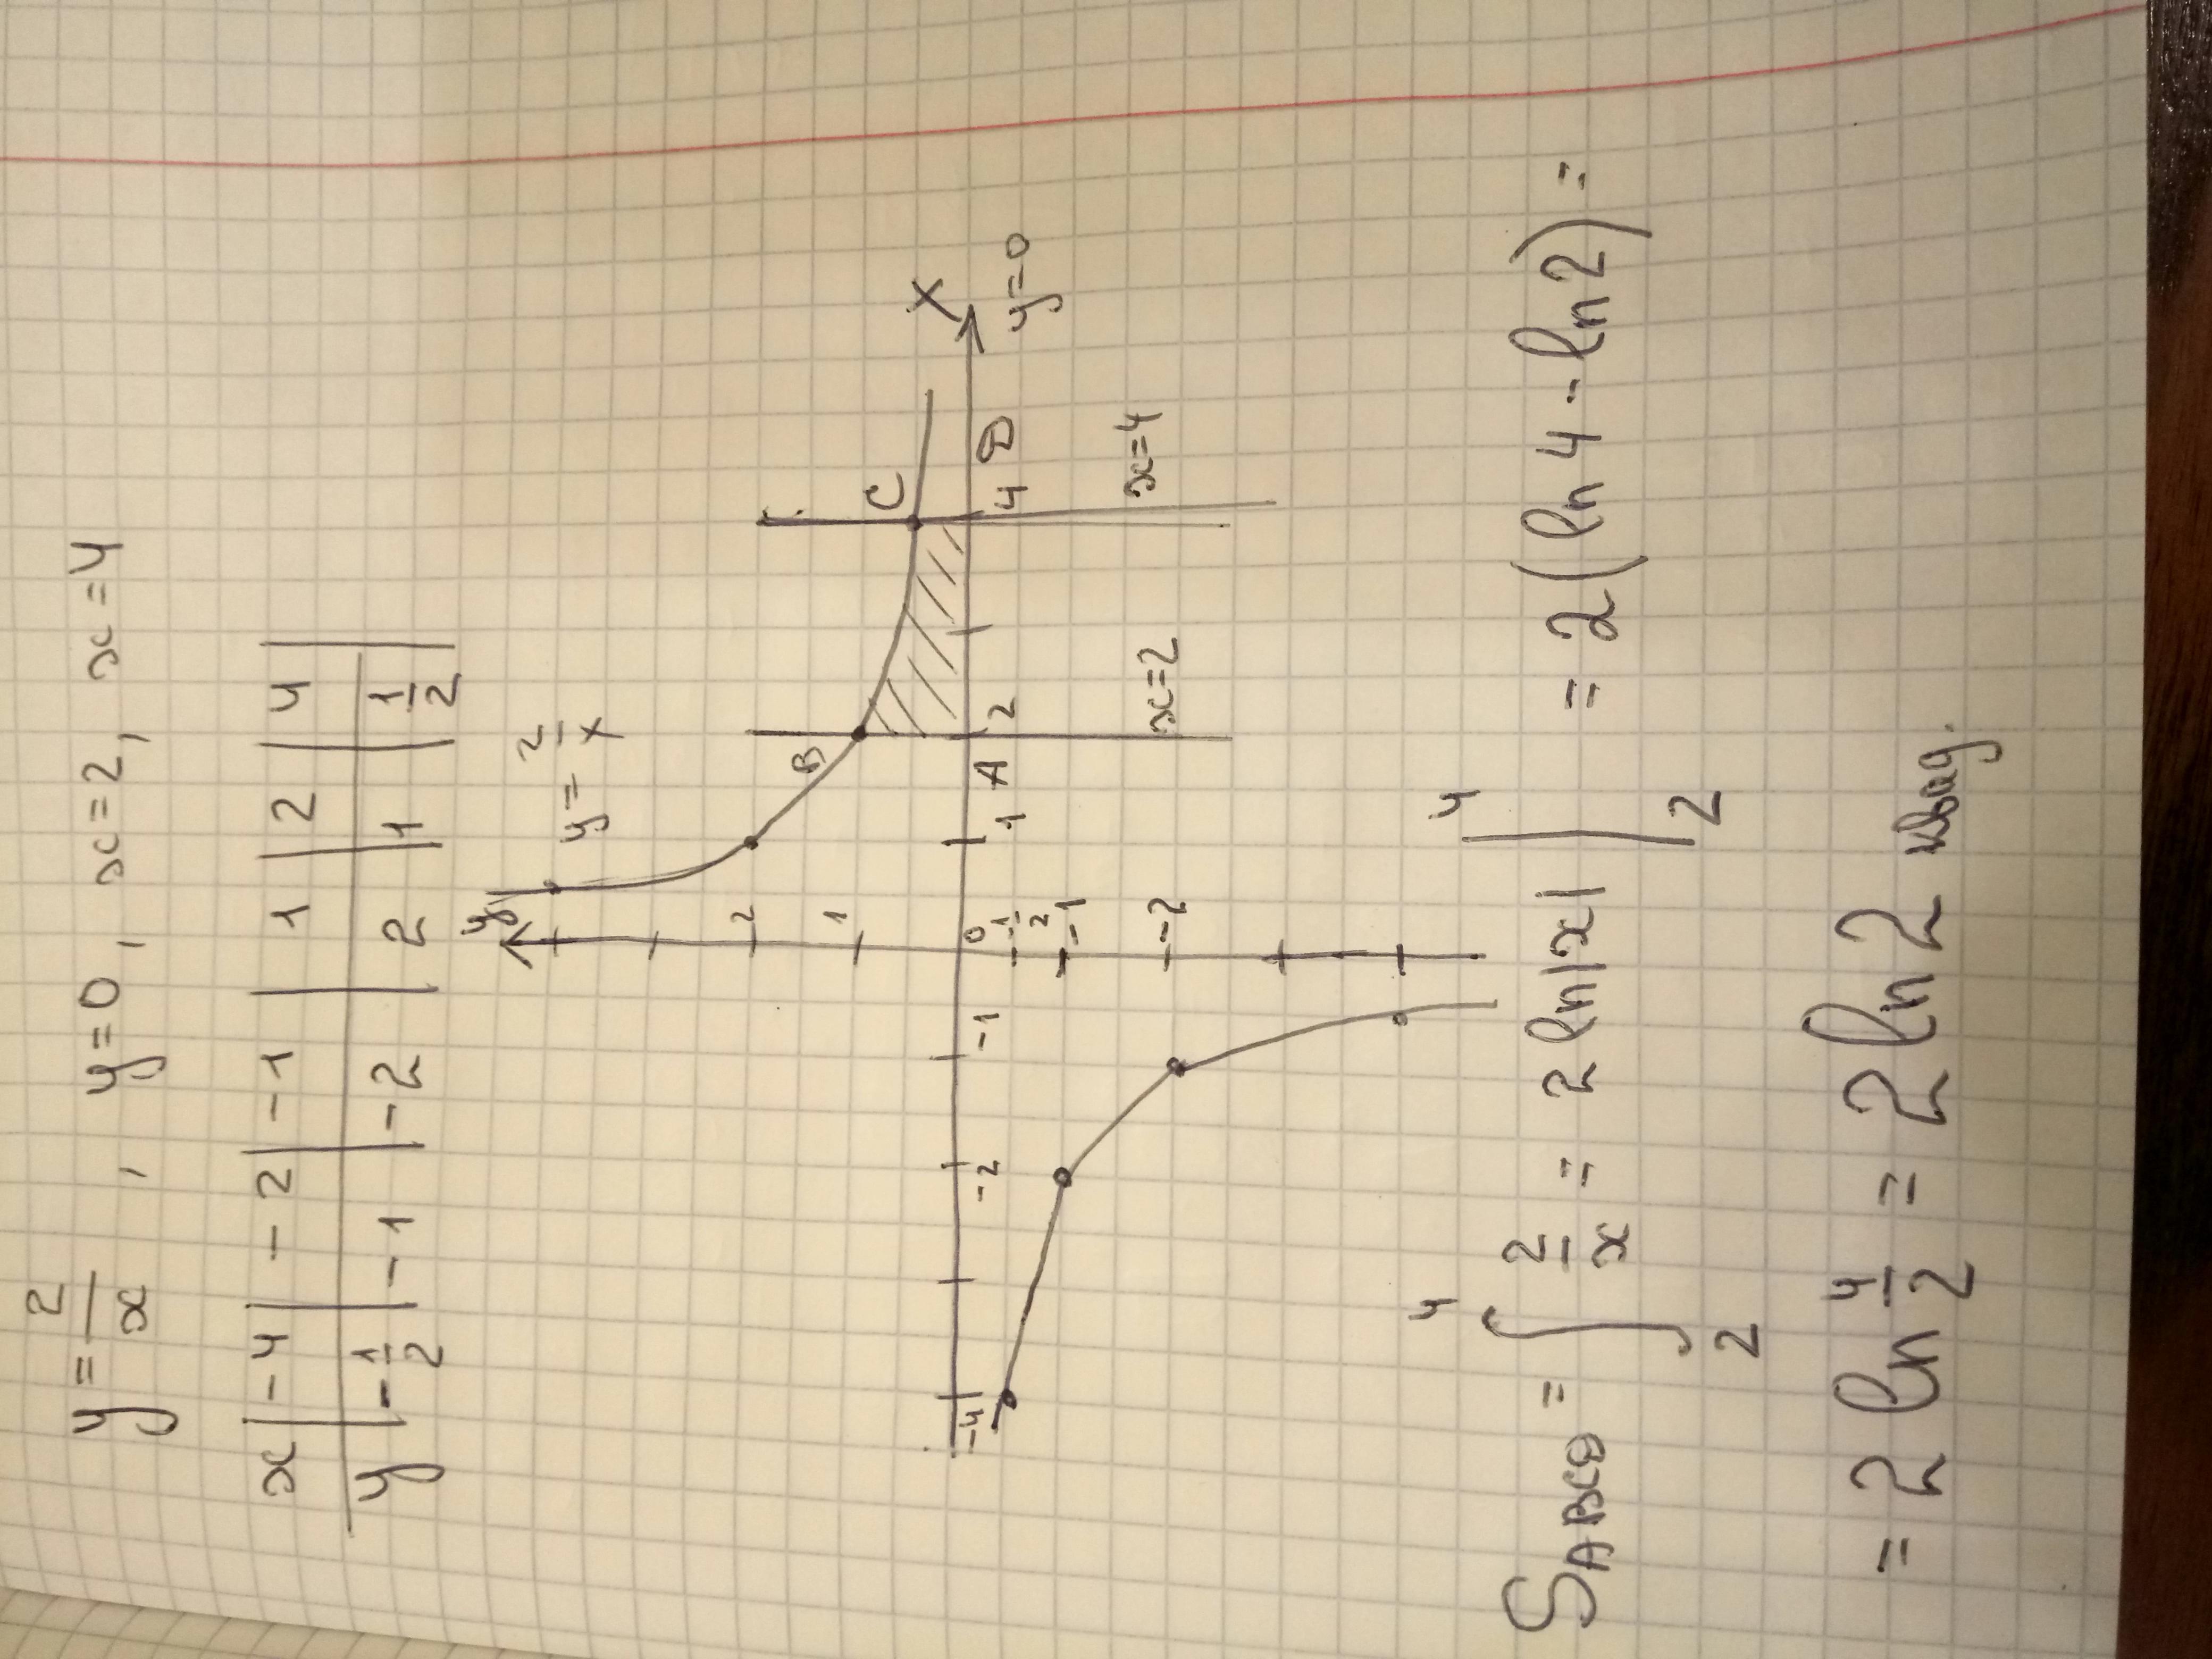 y = 2/x , y=0, x=2, x=4
x | -4 | -2 | -1 | 1 | 2 | 4 |
y | -1/2 | -1 | -2 | 2 | 1 | 1/2
y
y = 2/x
2
1
B
C
X
-4 -2 -1 0 1 A 2 4 D
y=0
-1/2
-1
-2
x=2
x=4
S_ABCD = ∫_2^4 2/x = 2 ln|x| |_2^4 = 2(ln 4 - ln 2) =
= 2 ln 4/2 = 2 ln 2 квад.